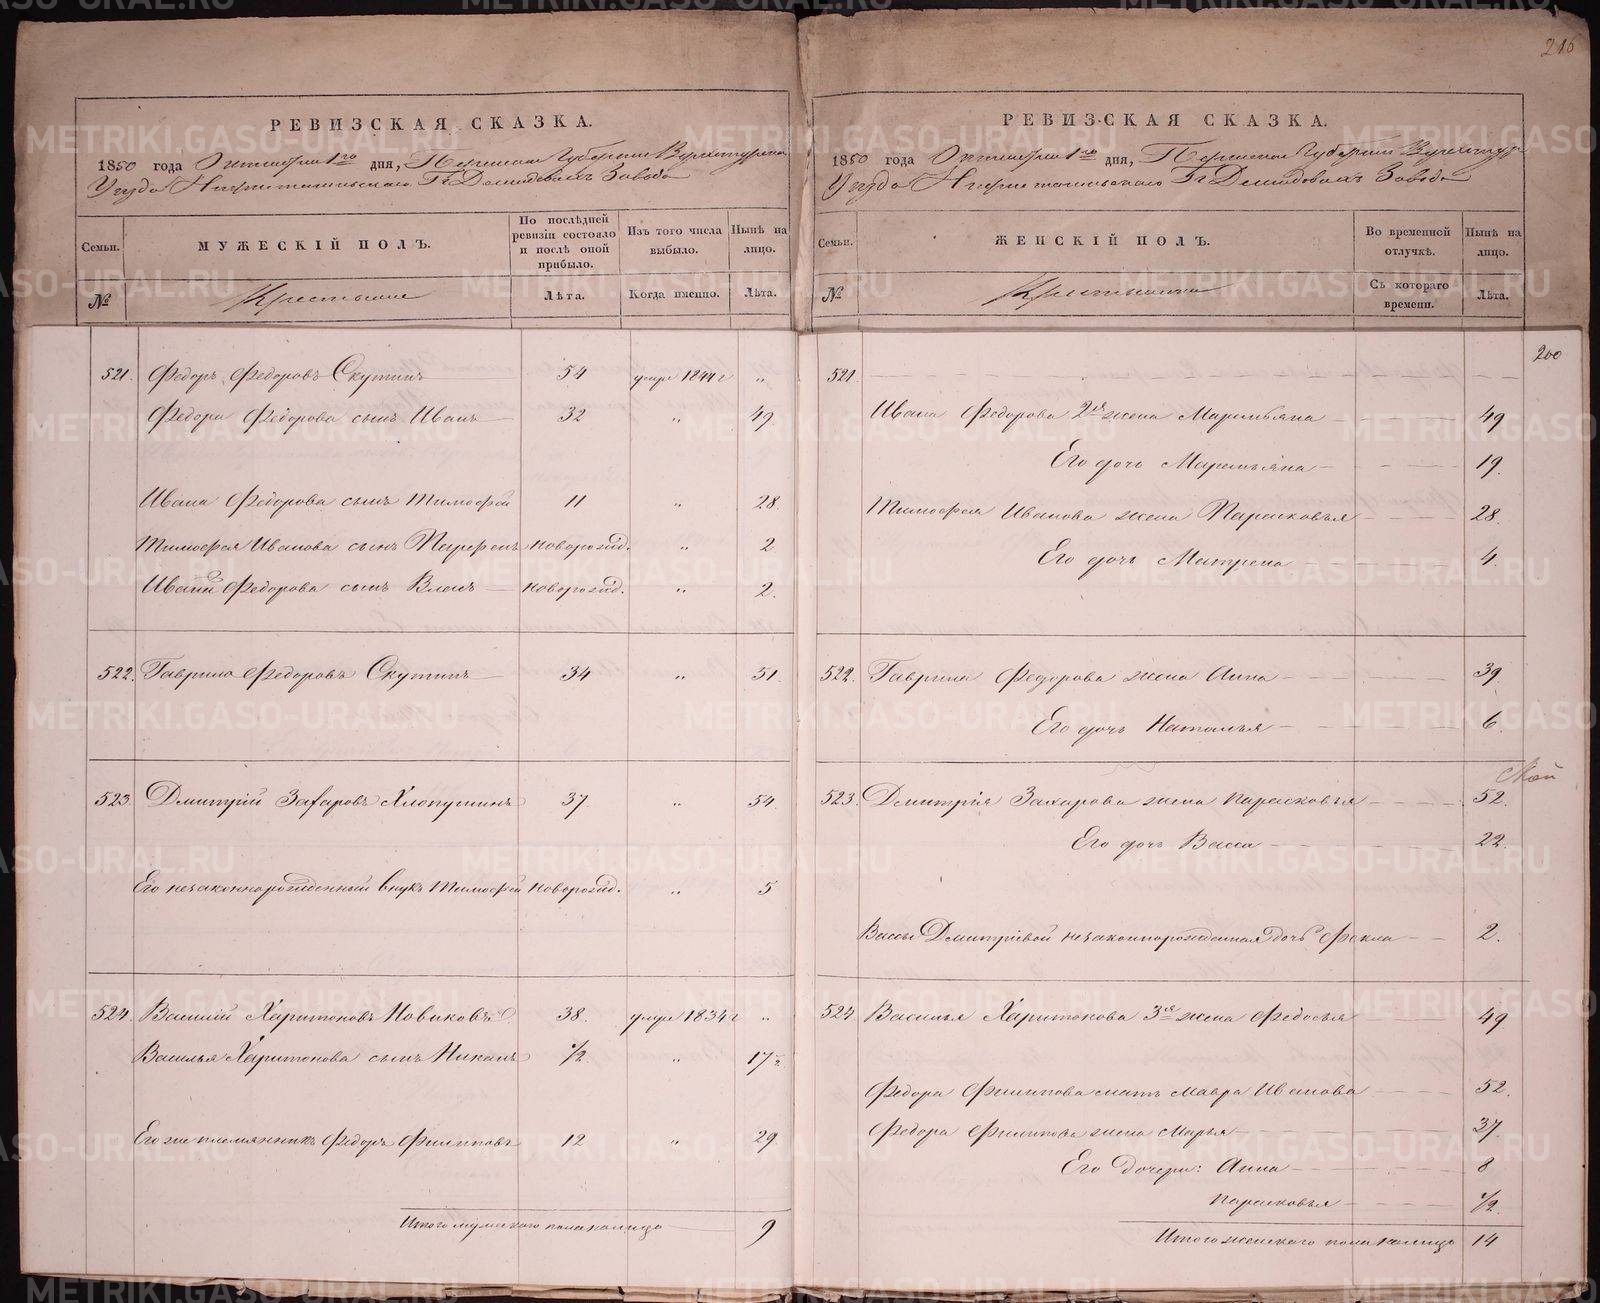 216
РЕВИЗСКАЯ СКАЗКА.
1850 года Октября 1го дня, Пермской Губернии Верхотурска
Уезда Нижнетагильскаго Гг Демидовыхъ Завода
Семьи.
МУЖЕСКІЙ ПОЛЪ.
По послѣдней ревизіи состояло и послѣ оной прибыло.
Изъ того числа выбыло.
Нынѣ на лицо.
№
Крестьяне
Лѣта.
Когда именно.
Лѣта.
521. Федоръ Федоровъ Скутинъ 54 умре 1844 г „
Федора Федорова сынъ Иванъ 32 „ 49
Ивана Федорова сынъ Тимофей 11 „ 28.
Тимофея Иванова сынъ Парфенъ новорожд. „ 2
Ивана Федорова сынъ новорожд. „ 2.
522. Гаврило Федоровъ Скутинъ 34 „ 51
523. Дмитрій Захаровъ Хлопушинъ 37. „ 54.
Его незаконнорожденный внукъ Тимофей новорожд. „ 5
524. Василій Харитоновъ Новиковъ 38. умре 1834 г „
Василья Харитонова сынъ 1/2 „ 17 1/2
Его же племянникъ Федоръ Филиповъ 12 „ 29.
Итого мужескаго пола налицо 9
РЕВИЗСКАЯ СКАЗКА.
1850 года Октября 1го дня, Пермской Губерніи Верхотур
Уезда Нижнетагильскаго Гг Демидовыхъ Завода
Семьи.
ЖЕНСКІЙ ПОЛЪ.
Во временной отлучкѣ.
Нынѣ на лицо.
№
Крестьянки
Съ котораго времени.
Лѣта.
200
521.
Ивана Федорова 2ая жена Маремьяна 49
Его дочь Маремьяна 19.
Тимофея Иванова жена Парасковья 28.
Его дочь Матрена 4.
522. Гаврила Федорова жена Анна 39.
Его дочь Наталья 6.
523. Дмитрія Захарова жена Парасковья 52.
Его дочь Васса 22.
Вассы Дмитріевой незаконнорожденная дочь Фекла 2.
524 Василья Харитонова 3я жена Федосья 49
Федора Филипова мать Мавра Иванова 52.
Федора Филипова жена Марья 37
Его дочери: Анна 8
Парасковья 1/2.
Итого женскаго пола налицо 14
METRIKI.GASO-URAL.RU